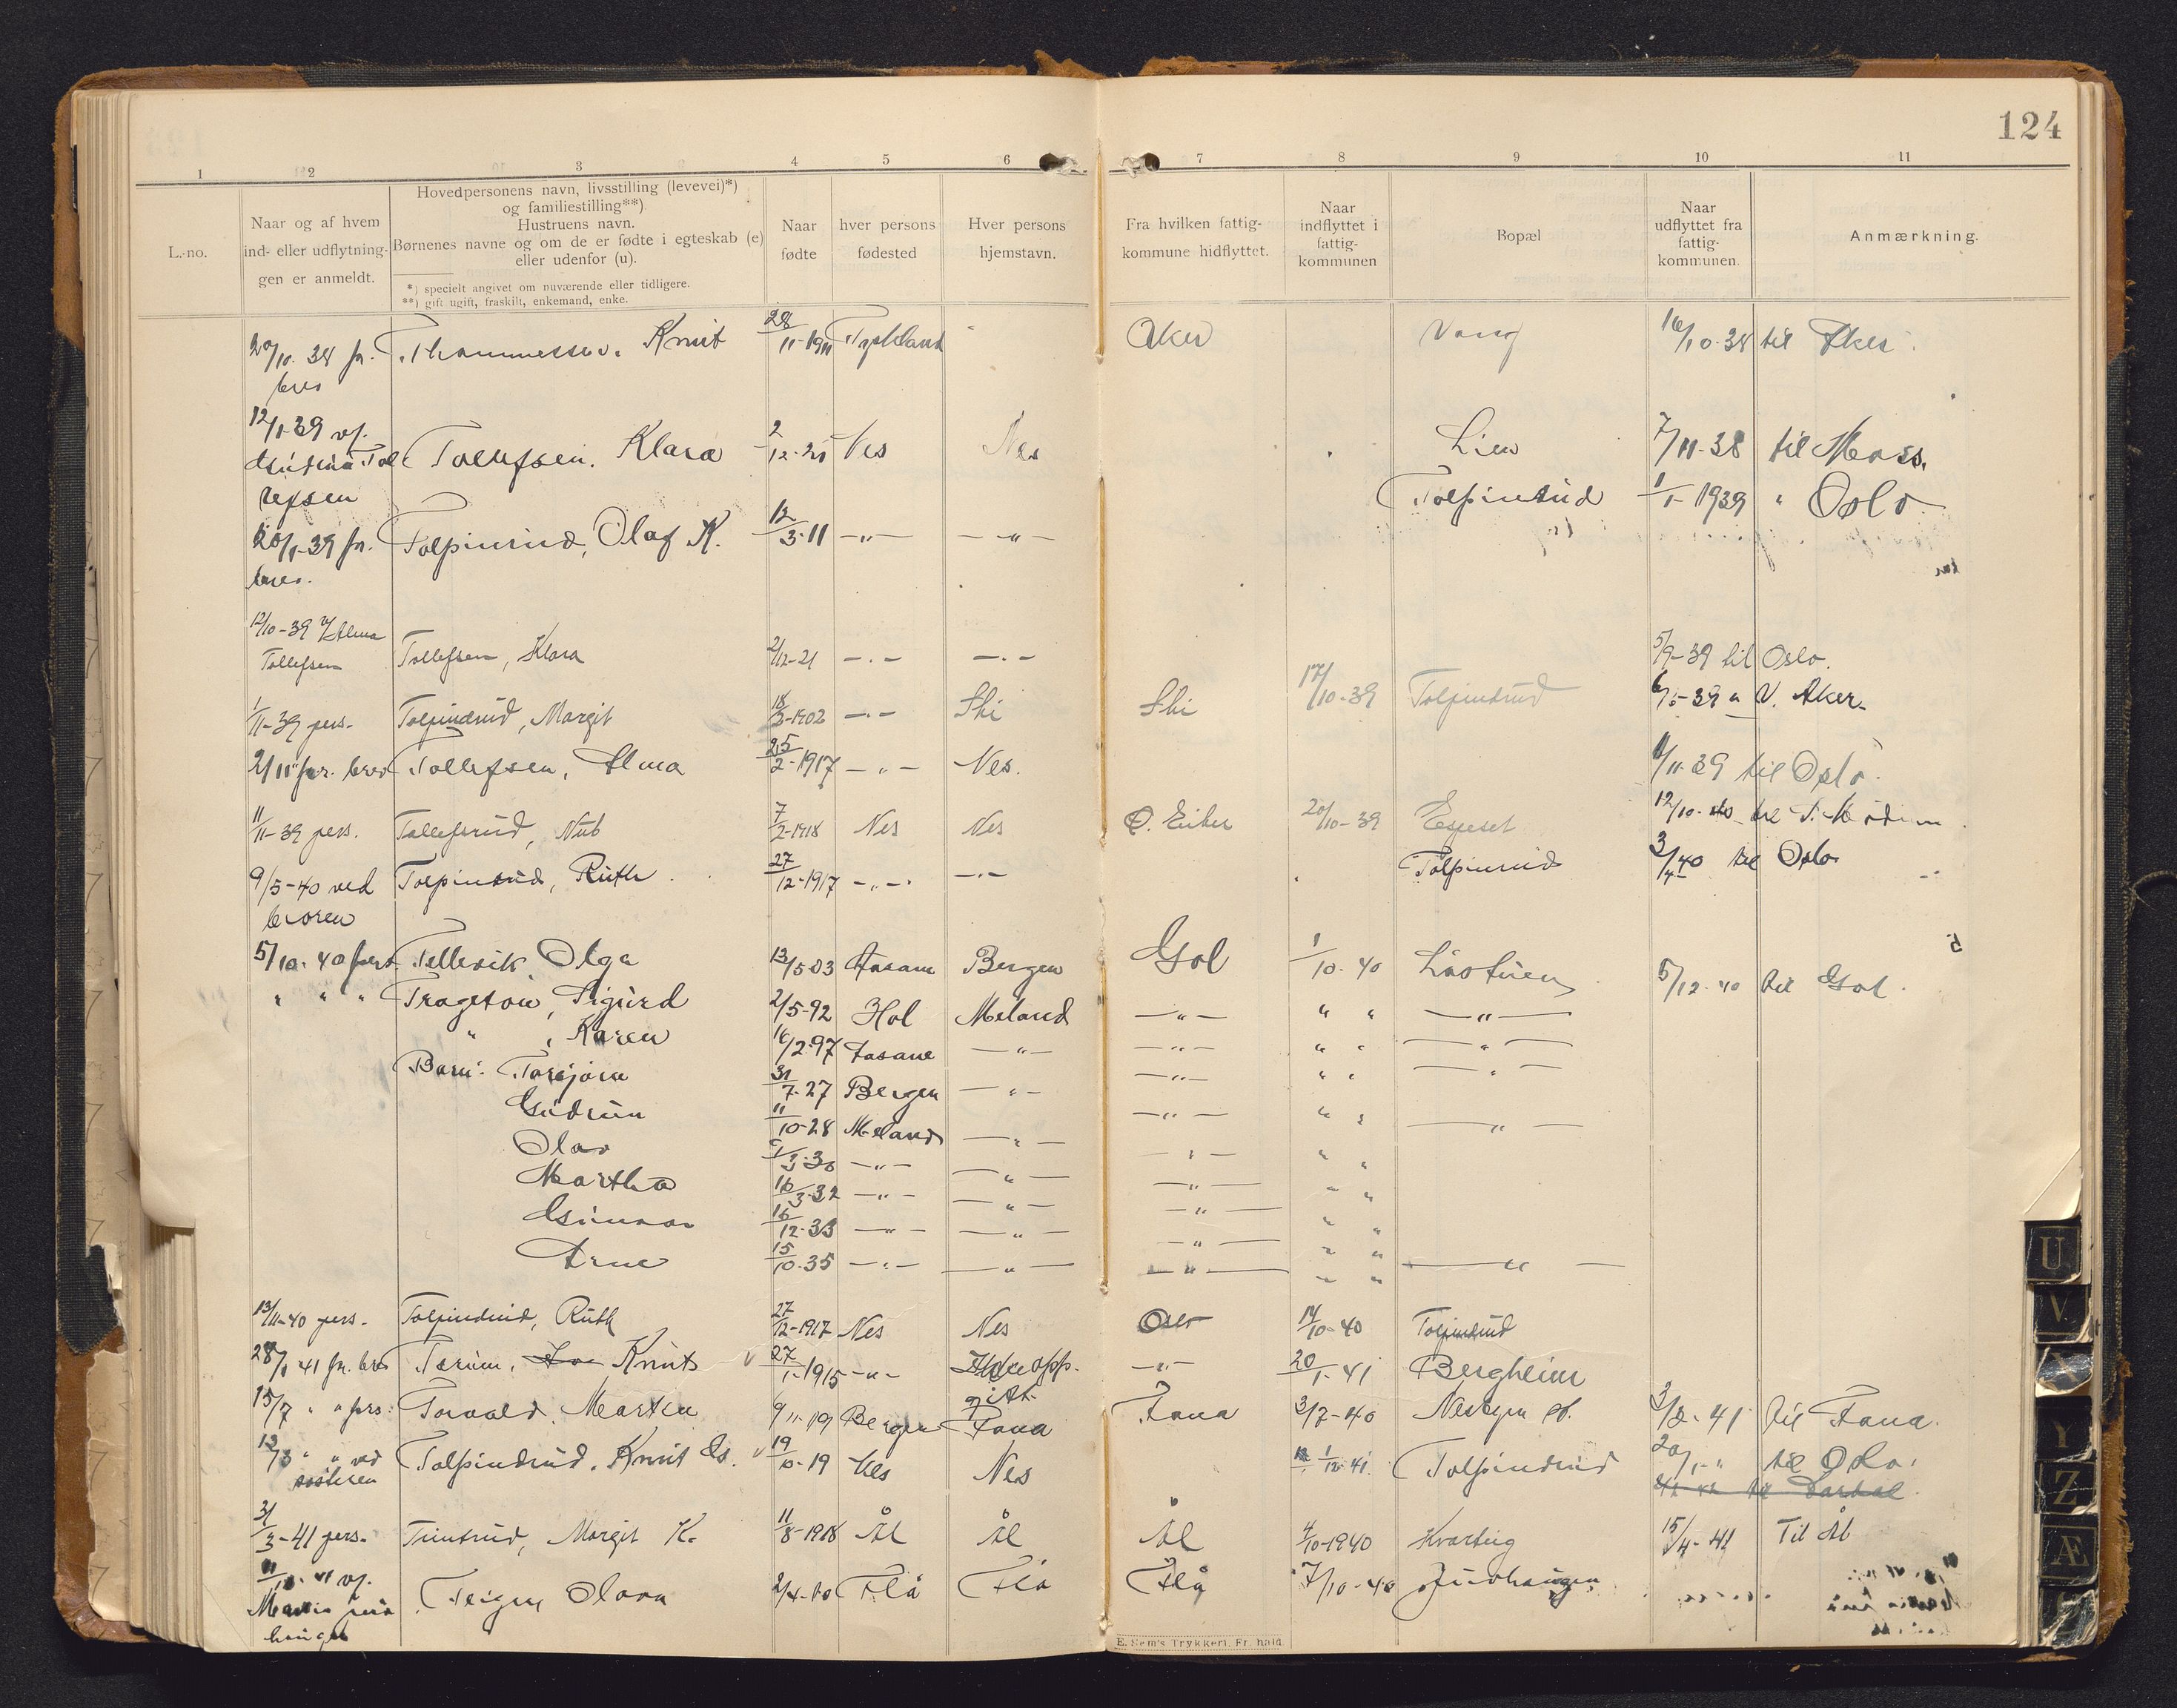 124
1 2 3 4 5 6 7 8 9 10 11
L.-no.
Naar og af hvem
ind- eller udflytnin-
gen er anmeldt.
Hovedpersonens navn, livsstilling (levevei)*)
og familiestilling**)
Hustruens navn.
Børnenes navne og om de er fødte i egteskab (e)
eller udenfor (u).
*) specielt angivet om nuværende eller tidligere.
**) gift, ugift, fraskilt, enkemand, enke.
Naar
fødte
hver persons
fødested
Hver persons
hjemstavn.
Fra hvilken fattig-
kommune hidflyttet.
Naar
indflyttet i
fattig-
kommunen
Bopæl
Naar
udflyttet fra
fattig-
kommunen.
Anmærkning.
20/10. 38 pr. Thommessen. Knut 28/11-1911 Tyskland Aker Vang 16/10-38 til Aker.
brev
12/1-39 v/.
Tollefsen. Klara 2/12-21 Nes Nes Lien 7/11-38 til Moss.
lefsen
Tolpinrud 1/1-1939 " Oslo
20/1-39 pr. Tolpinrud, Olaf K. 12/3-11 -"- -"-
brev.
12/10-39 v/Alma
Tollefsen Tollefsen, Klara 2/12-21 -"- -"- 5/9-39 til Oslo.
1/11-39 pers. Tolpindrud, Margit 18/3-1902 -"- Ski Ski 17/10-39 Tolpindrud V. Aker.
2/11 " pr. brev Tollefsen, Alma 25/2-1917 -"- Nes. 1/11-39 til Oslo.
11/11-39 pers. Tollefsrud, Nub 7/2-1918 Nes Nes Ø. Eiker 20/10-39 Espeset 12/10-40 til S. Modum
9/5-40 ved Tolpinrud, Ruth 27/12-1917 -"- -"- Tolpinrud 3/4-40 til Oslo
broren
5/10-40 pers. Tellevik, Olga 13/5-03 Aasane Bergen Gol 1/10-40 Liastuen 5/12-40 til Gol.
" " " Trageton, Sigurd 2/5-92 Hol Meland -"- " " -"-
" , Karen 16/2-97 Aasane -"- -"- " " -"-
Barn: Torbjørn 31/7-27 Bergen -"- -"- " " -"-
Gudrun 11/10-28 Meland -"- -"- " " -"-
Olav -"- -"- -"- " "
Martha 16/3-32 -"- -"- -"- " "
Gunnar 16/12-33 -"- -"- -"- " "
Arne 15/10-35 -"- -"- -"- " " -"-
13/11-40 pers. Tolpindrud, Ruth 27/12-1917 Nes Nes Oslo 14/10-40 Tolpindrud
28/1 41 pr. brev Torum, Knut 27/1-1915 -"- Ikke opp- -"- 20/1-41 Bergheim
gitt
15/7 " " pers. Torvald, Martin 9/11-19 Bergen Fana Fana 3/7-40 Nesbyen st. 3/2-41 til Fana.
12/3 " " ved Tolpindrud, Knut Gs. 19/10-19 Nes Nes 1/12-41. Tolpindrud 20/1-" til Oslo.
søsteren
31/3-41 pers. Trintrud, Margit K. 11/8-1918 Ål Ål Ål 4/10-1940 Kvarteig 15/4-41 Til Ål
11/10-41 v/.
Teigen Olava 2/4-10 Flå Flå Flå 7/10-40 Juvhaugen
haugen
U
V
X
Y
Z
Æ
E. Sem's Trykkeri, Fr.hald